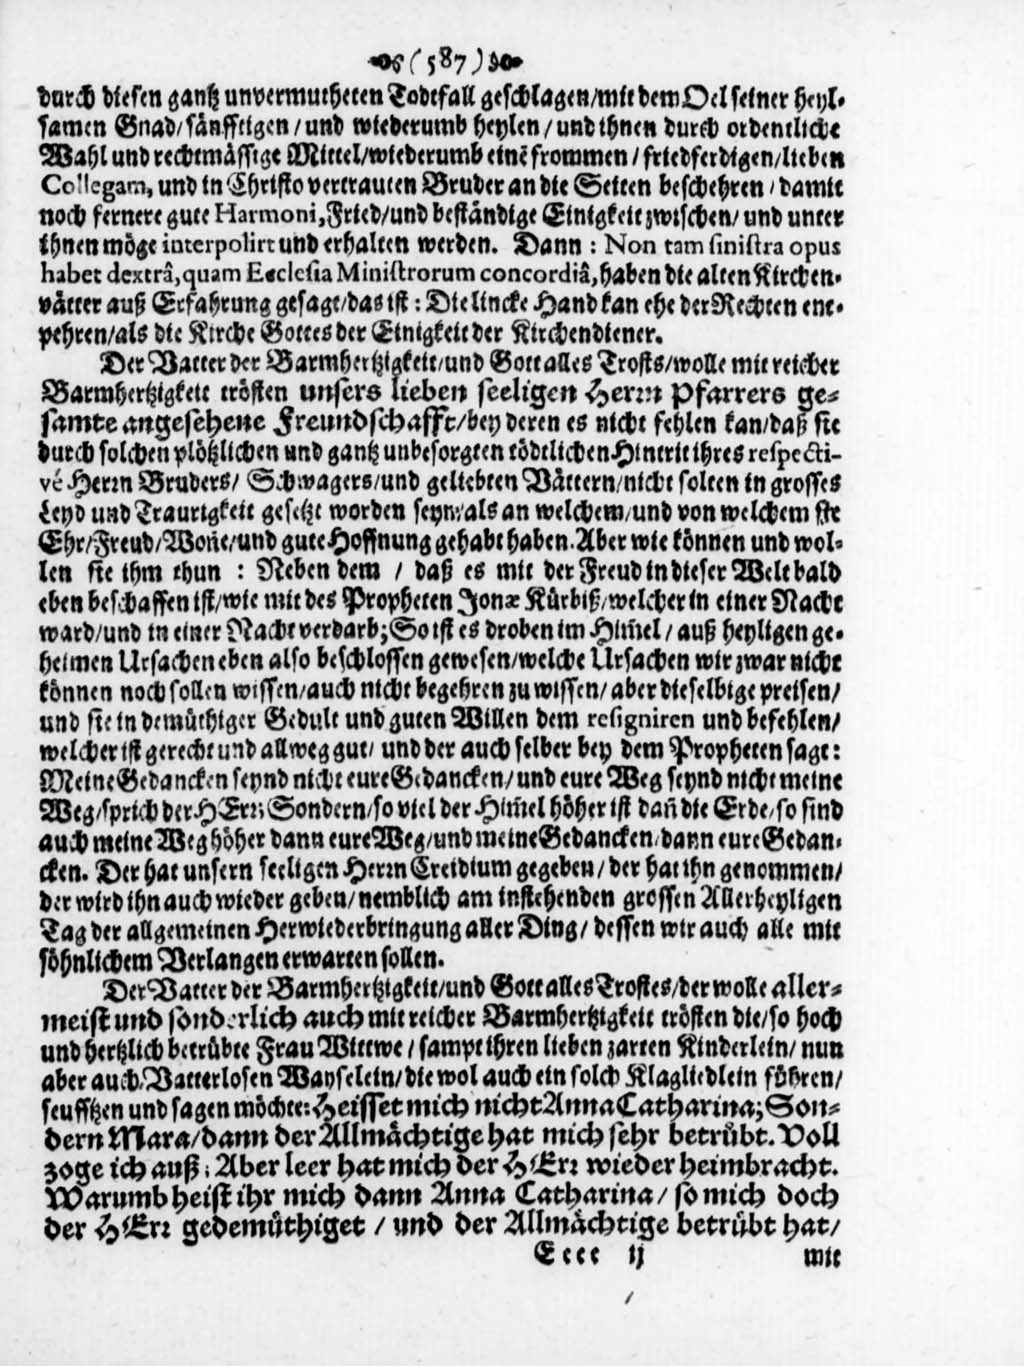 (587)
durch diesen gantz unvermutheten Todtfall geschlagen/mit dem Oel seiner heyl-
samen Gnad/sänfftigen/und wiederumb heylen/und ihnen durch ordentliche
Wahl und rechtmässige Mittel/wiederumb einē frommen/friedferdigen/lieben
Collegam, und in Christo vertrauten Bruder an die Seiten beschehren/damit
noch fernere gute Harmoni, Fried/und beständige Einigkeit zwischen/und unter
ihnen möge interpolirt und erhalten werden. Dann: Non tam sinistra opus
habet dextrâ, quam Ecclesia Ministrorum concordiâ, haben die alten Kirchen-
vätter auß Erfahrung gesagt/das ist: Die lincke Hand kan ehe der Rechten ent-
pehren/als die Kirche Gottes der Einigkeit der Kirchendiener.
Der Vatter der Barmhertzigkeit/und Gott alles Trosts/wolle mit reicher
Barmhertzigkeit trösten unsers lieben seeligen Herrn Pfarrers ge-
samte angesehene Freundschafft/bey deren es nicht fehlen kan/daß sie
durch solchen plötzlichen und gantz unbesorgten tödtlichen Hintrit ihres respecti-
vé Herrn Bruders/Schwagers/und geliebten Vättern/nicht solten in grosses
Leyd und Traurigkeit gesetzt worden seyn/als an welchem/und von welchem sie
Ehr/Freud/Woñe/und gute Hoffnung gehabt haben. Aber wie können und wol-
len sie ihm thun: Neben dem/daß es mit der Freud in dieser Welt bald
eben beschaffen ist/wie mit des Propheten Jonæ Kürbiß/welcher in einer Nacht
ward/und in einer Nacht verdarb; So ist es droben im Him̃el/auß heyligen ge-
heimen Ursachen eben also beschlossen gewesen/welche Ursachen wir zwar nicht
können noch sollen wissen/auch nicht begehren zu wissen/aber dieselbige preisen/
und sie in demüthiger Gedult und guten Willen dem resigniren und befehlen/
welcher ist gerecht und allweg gut/und der auch selber bey dem Propheten sagt:
Meine Gedancken seynd nicht eure Gedancken/und eure Weg seynd nicht meine
Weg/sprich der HErr; Sondern/so viel der Him̃el höher ist dañ die Erde/so sind
auch meine Weg höher dann eure Weg/und meine Gedancken/dann eure Gedan-
cken. Der hat unsern seeligen Herrn Creidium gegeben/der hat ihn genommen/
der wird ihn auch wieder geben/nemblich am instehenden grossen Allerheyligen
Tag der allgemeinen Herwiederbringung aller Ding/dessen wir auch alle mit
söhnlichem Verlangen erwarten sollen.
Der Vatter der Barmhertzigkeit/und Gott alles Trostes/der wolle aller-
meist und sonderlich auch mit reicher Barmhertzigkeit trösten die/so hoch
und hertzlich betrübte Frau Wittwe/sampt ihren lieben zarten Kinderlein/nun
aber auch Vatterlosen Wayselein/die wol auch ein solch Klagliedlein führen/
seufftzen und sagen möchte: Heisset mich nicht Anna Catharina; Son-
dern Mara/dann der Allmächtige hat mich sehr betrübt. Voll
zoge ich auß; Aber leer hat mich der HErr wieder heimbracht.
Warumb heist ihr mich dann Anna Catharina/so mich doch
der HErr gedemüthiget/und der Allmächtige betrübt hat/
Eeee ij
mit